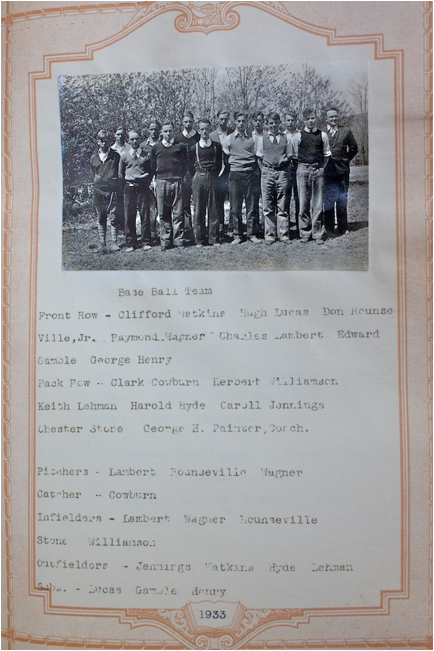 Base Ball Team
Front Row - Clifford Watkins Hugh Lucas Don Rounse
Ville,Jr. Raymond Wagner Charles Lambert Edward
Gamble George Henry
Back Row - Clark Cowburn Herbert Williamson
Keith Lehman Harold Hyde Caroll Jennings
Chester Stone George H. Painter,Coach.
Pitchers - Lambert Rounseville Wagner
Catcher - Cowburn
Infielders - Lambert Wagner Rounseville
Stone Williamson
Outfielders - Jennings Watkins Hyde Lehman
Subs. - Lucas Gamble Henry
1933